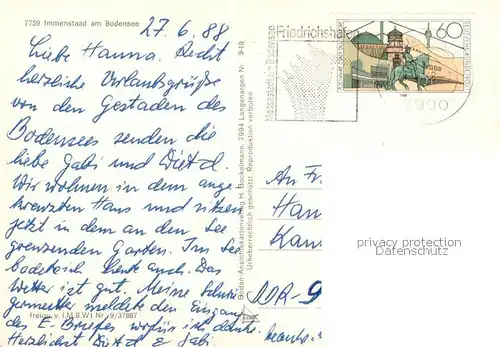 7759 Immenstaad am Bodensee
27.6.88
Liebe Hanna. Recht
herzliche Urlaubsgrüße
von den Gestaden des
Bodensees senden die
liebe Gabi und Diet d.
Wir wohnen in dem ange-
kreuzten Haus und sitzen
jetzt in dem an den See
grenzenden Garten. Im See
badete ich heute auch. Das
Wetter ist gut. Meine
germeister meldete den Eingang
des E-Briefes wofür ich danke.
Herzlichst Diet d & Gabi.
freigg. v. I.M.B.W1 Nr. 9/37887
Bodan-Ansichtskartenverlag H. Bockelmann, 7994 Langenargen Nr. 9-19
Urheberrechtlich geschützt. Reproduktion verboten
Friedrichshafen
Messestadt am Bodensee
60
DEUTSCHE BUNDESPOST
7990
An Fr.
Han
Kan
DDR-9
privacy protection
Datenschutz